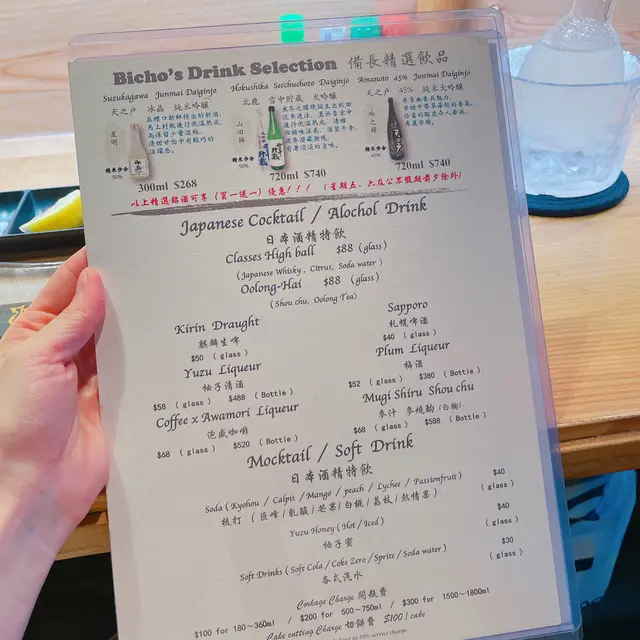 Bicho's Drink Selection 備長精選飲品
Suzukagawa Junmai Daiginjo
天之戶 冰晶 純米吟釀
星明
精米步合
50%
300ml $268
Hokushika Secchuchozo Daiginjo
北鹿 雪中貯藏 大吟釀
山田錦
精米步合
50%
720ml $740
Amanoto 45% Junmai Daiginjo
天之戶 45% 純米大吟釀
吟之精
精米步合
45%
720ml $740
以上精選銘酒可享 (買一送一) 優惠!!! (星期五、六及公眾假期前夕除外)
Japanese Cocktail / Alochol Drink
日本酒精特飲
Classes High ball $88 (glass)
(Japanese Whisky, Citrus, Soda water )
Oolong-Hai $88 (glass)
(Shou chu, Oolong Tea)
Kirin Draught
麒麟生啤
$50 ( glass )
Sapporo
札幌啤酒
$40 ( glass )
Yuzu Liqueur
柚子清酒
$58 ( glass ) $488 ( Bottle )
Plum Liqueur
梅酒
$52 ( glass ) $380 ( Bottle )
Coffee x Awamori Liqueur
泡盛咖啡
$68 ( glass ) $520 ( Bottle )
Mugi Shiru Shou chu
麥汁 麥燒酌 (白麴)
$68 ( glass ) $588 ( Bottle )
Mocktail / Soft Drink
日本酒精特飲
Soda ( Kyohou / Calpis / Mango / peach / Lychee / Passionfruit ) $40
梳打 ( 巨峰 / 乳酸 / 芒果 / 白桃 / 荔枝 / 熱情果 ) ( glass )
Yuzu Honey ( Hot / Iced ) $40
柚子蜜 ( glass )
Soft Drinks ( Soft Cola / Coke Zero / Sprite / Soda water ) $30
各式汽水 ( glass )
Corkage Charge 開瓶費
$100 for 180~360ml / $200 for 500~750ml / $300 for 1500~1800ml
Cake cutting Charge 切餅費 $100 / cake
10% service charge